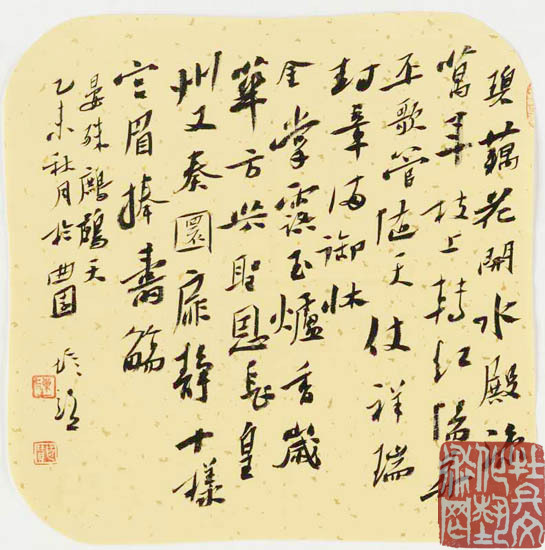 碧藕花開水殿涼
萬年枝上轉紅陽升
平歌管隨天仗祥瑞
封章滿御床
金掌露玉爐香歲
華方共聖恩長皇
州又奏圜扉靜十樣
宫眉捧壽觴
晏殊鷓鴣天
乙未秋月於曲園